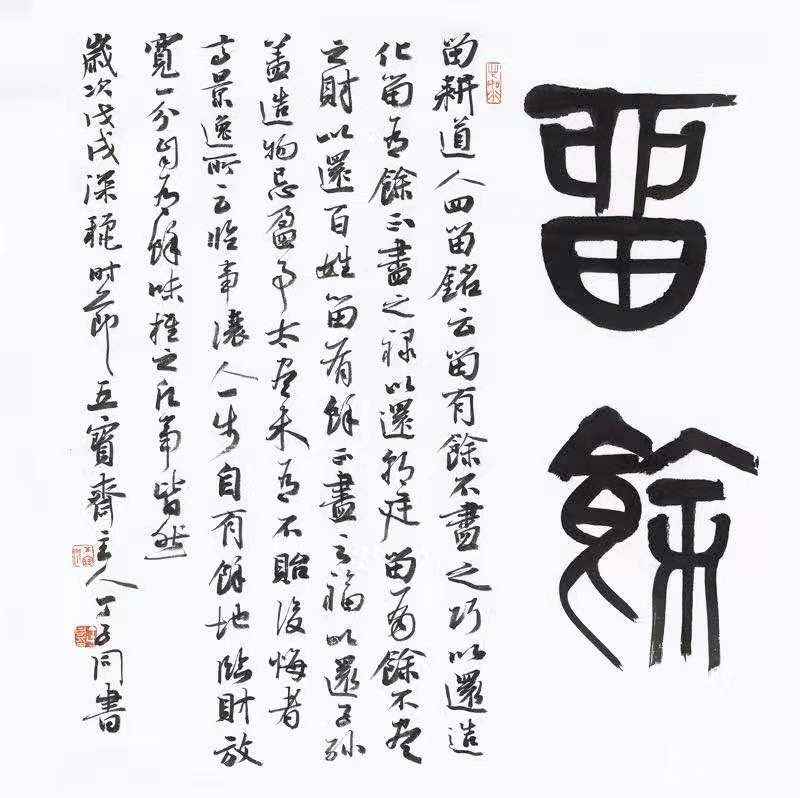 留餘
留耕道人四留銘云留有餘不盡之巧以還造
化留有餘不盡之祿以還朝廷留有餘不盡
之財以還百姓留有餘不盡之福以還子孫
蓋造物忌盈事太盡未有不貽後悔者
高景逸所云臨事讓人一步自有餘地臨財放
寬一分自有餘味推之凡事皆然
歲次戊戌深秋時節五寶齋主人丁子同書